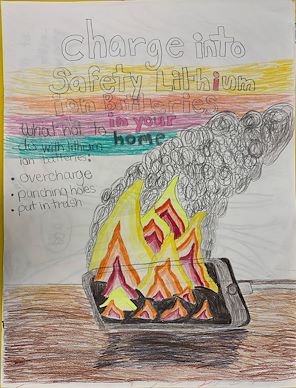 charge into
Safety Lithium
ion Batteries
in your
home
What not to
do with lithium
ion batteries:
• overcharge
• punching holes
• put in trash